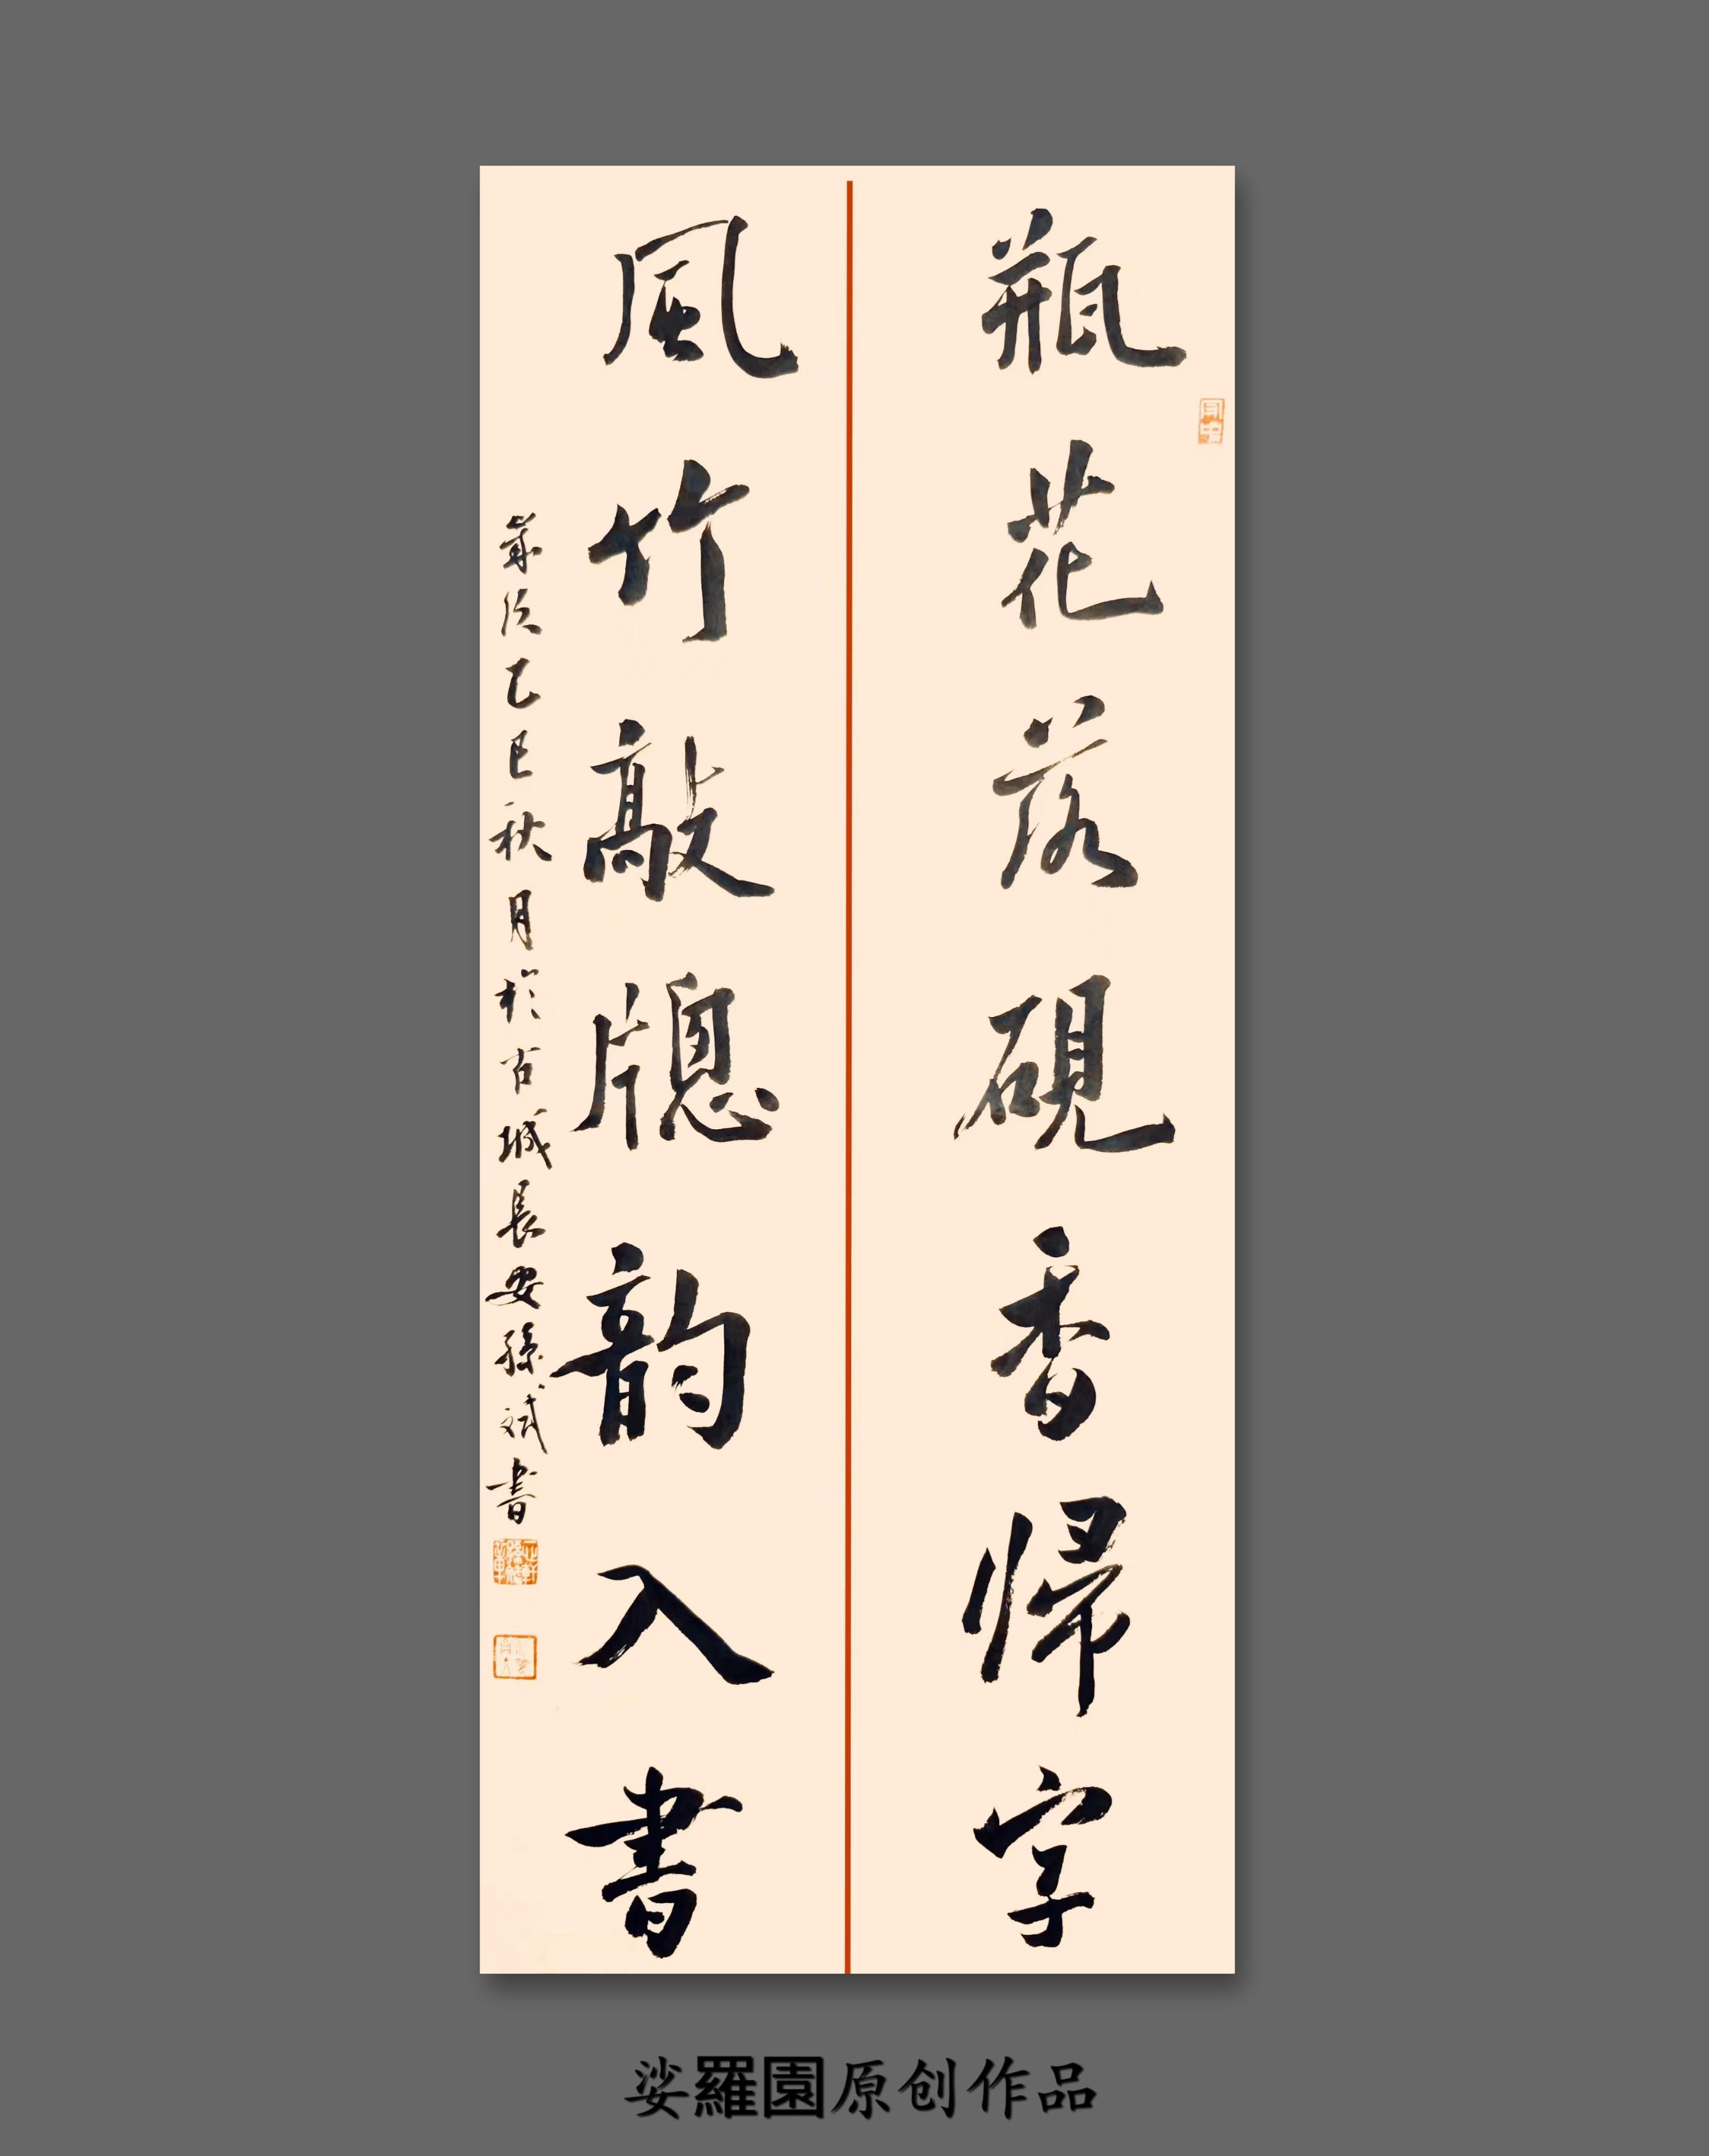 瓶花落硯香歸字
風竹敲牕韵入書
歲次乙巳秋月於古城長安孫斌書
娑羅園原创作品